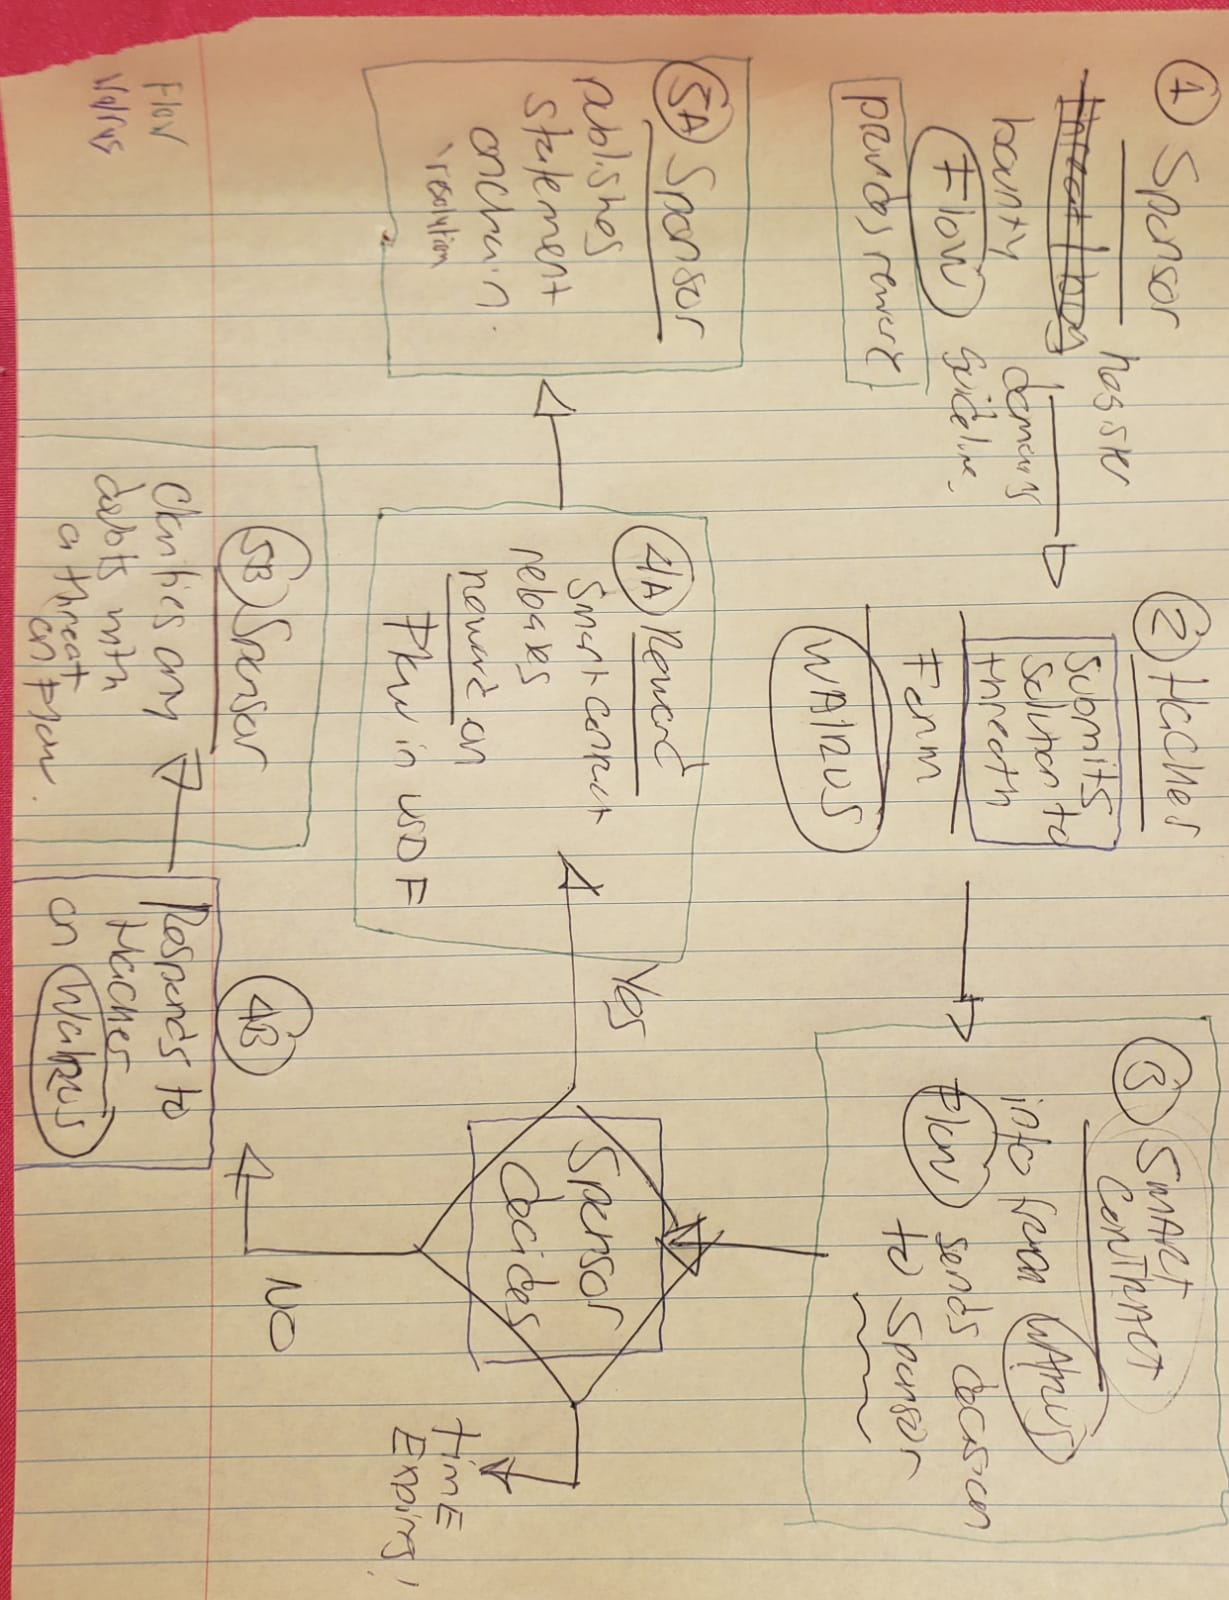 1 Sponsor
register
bounty domains
Flow guideline,
provides reward
2 Hacker
Submits
Solution to
threath
Form
WAlRUS
3 SMART
CONTRACT
info from WAlrus
Flow sends decision
to Sponsor
Sponsor
decides
Yes
NO
TimE
Expires!
4A Reward
Smart contract
releases
reward on
Flow in USDF
5A Sponsor
publishes
statement
onchain.
resolution
4B
Responds to
Hacker
on Walrus
5B Sponsor
Clarifies any
doubts with
a threat
on Flow.
Flow
Walrus